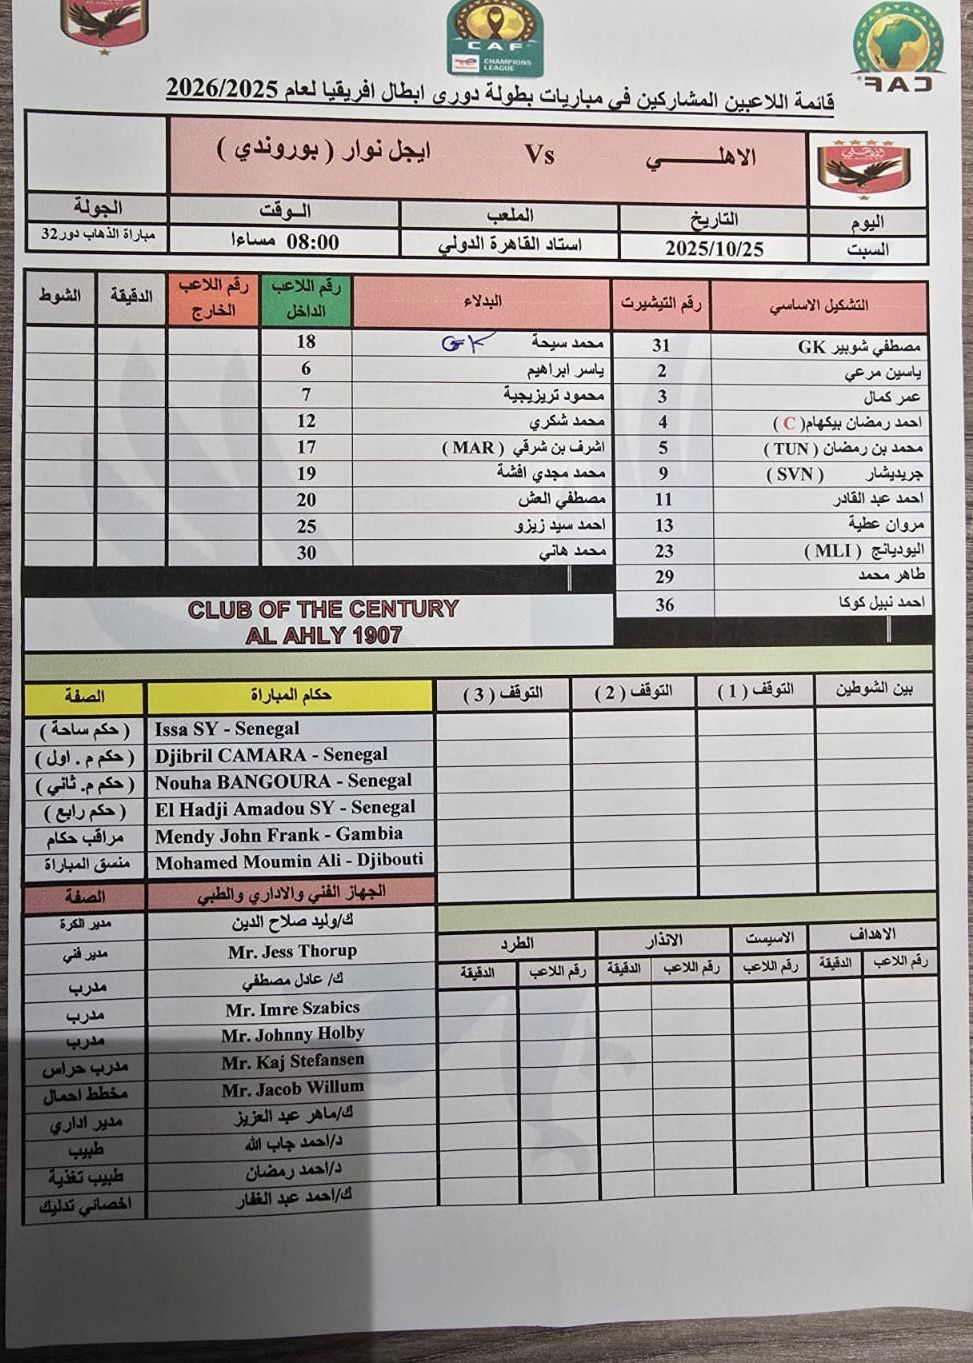 CAF
CHAMPIONS
LEAGUE
CAF
قائمة اللاعبين المشاركين في مباريات بطولة دوري ابطال افريقيا لعام 2026/2025
الاهلـــــــي Vs ايجل نوار ( بوروندي )
اليوم التاريخ الملعب الـوقت الجولة
السبت 2025/10/25 استاد القاهرة الدولي 08:00 مساءا مباراة الذهاب دور32
التشكيل الاساسي رقم التيشيرت البدلاء رقم اللاعب الداخل رقم اللاعب الخارج الدقيقة الشوط
مصطفي شوبير GK 31 محمد سيحة GK 18
ياسين مرعي 2 ياسر ابراهيم 6
عمر كمال 3 محمود تريزيجية 7
احمد رمضان بيكهام( C ) 4 محمد شكري 12
محمد بن رمضان ( TUN ) 5 اشرف بن شرقي ( MAR ) 17
جريديشار ( SVN ) 9 محمد مجدي افشة 19
احمد عبد القادر 11 مصطفي العش 20
مروان عطية 13 احمد سيد زيزو 25
اليوديانج ( MLI ) 23 محمد هاني 30
طاهر محمد 29
احمد نبيل كوكا 36
CLUB OF THE CENTURY
AL AHLY 1907
بين الشوطين التوقف ( 1 ) التوقف ( 2 ) التوقف ( 3 ) حكام المباراة الصفة
Issa SY - Senegal ( حكم ساحة )
Djibril CAMARA - Senegal ( حكم م . اول )
Nouha BANGOURA - Senegal ( حكم م. ثاني )
El Hadji Amadou SY - Senegal ( حكم رابع )
Mendy John Frank - Gambia مراقب حكام
Mohamed Moumin Ali - Djibouti منسق المباراة
الجهاز الفني والاداري والطبي الصفة
ك/وليد صلاح الدين مدير الكرة
Mr. Jess Thorup مدير فني
ك/ عادل مصطفي مدرب
Mr. Imre Szabics مدرب
Mr. Johnny Holby مدرب
Mr. Kaj Stefansen مدرب حراس
Mr. Jacob Willum مخطط احمال
ك/ماهر عبد العزيز مدير اداري
د/احمد جاب الله طبيب
د/احمد رمضان طبيب تغذية
ك/احمد عبد الغفار اخصائي تدليك
الاهداف الاسيست الانذار الطرد
رقم اللاعب الدقيقة رقم اللاعب رقم اللاعب الدقيقة رقم اللاعب الدقيقة